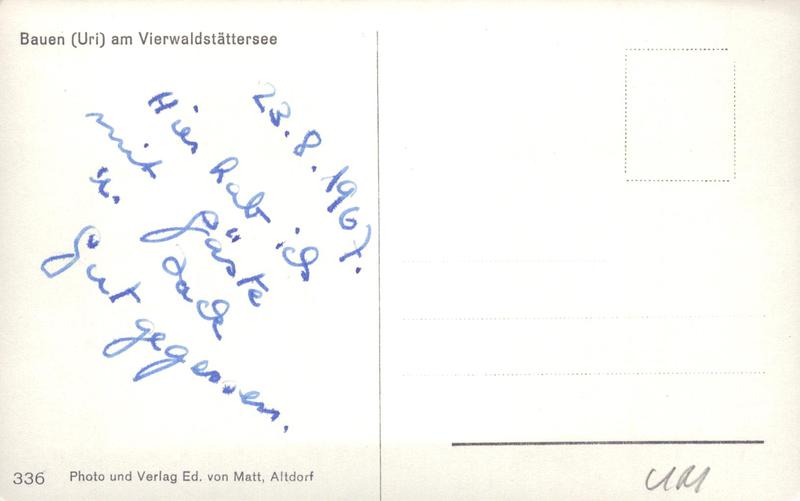 Bauen (Uri) am Vierwaldstättersee
23. 8. 1967.
Hier hab ich
mit Gäste
u.
Gut gegessen.
336 Photo und Verlag Ed. von Matt, Altdorf
URI